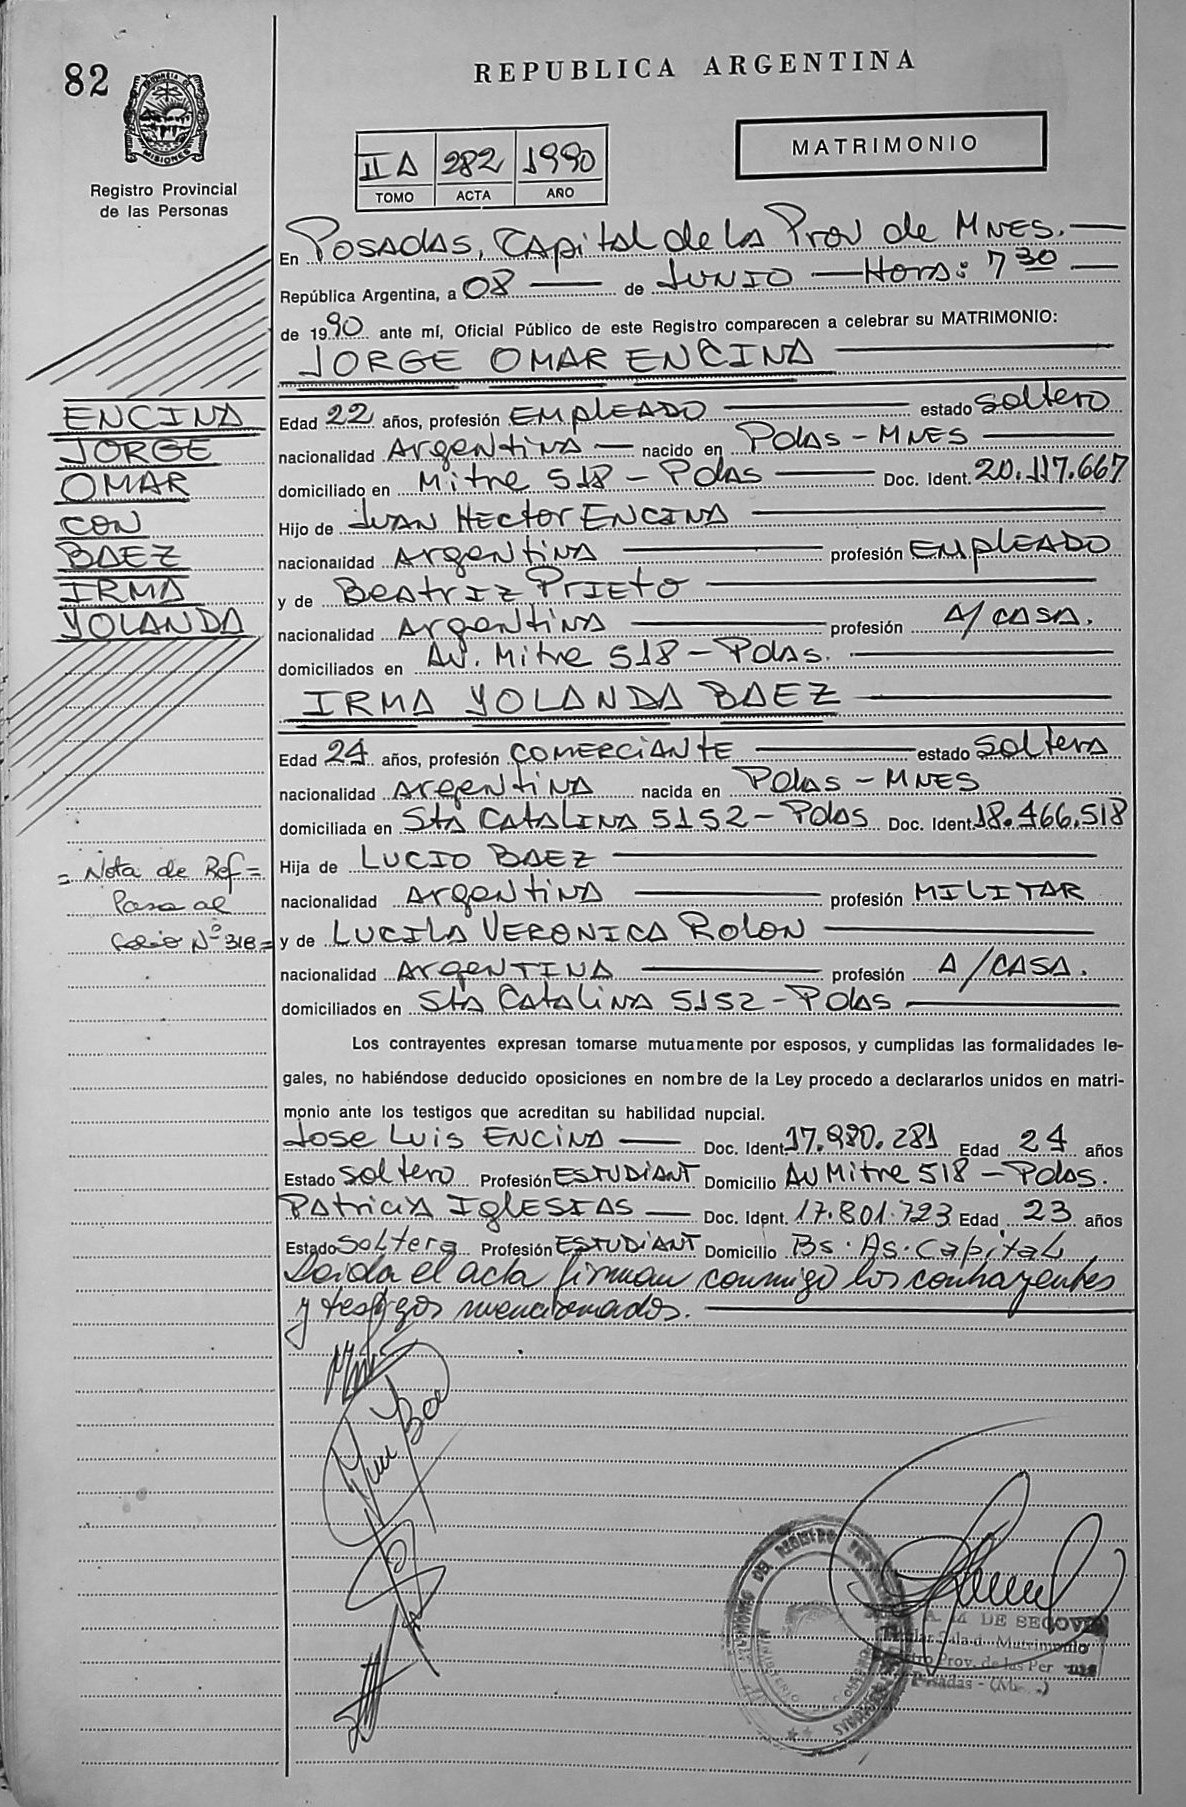 82
REPUBLICA ARGENTINA
MISIONES
Registro Provincial
de las Personas
II A 282 1990
TOMO ACTA AÑO
MATRIMONIO
En POSADAS, CAPITAL de LA Prov de MNES.
República Argentina, a 08 de JUNIO Hora: 7 30
de 1990 ante mí, Oficial Público de este Registro comparecen a celebrar su MATRIMONIO:
JORGE OMAR ENCINA
ENCINA
JORGE
OMAR
CON
BAEZ
IRMA
YOLANDA
Edad 22 años, profesión EMPLEADO estado soltero
nacionalidad Argentina nacido en Pdas - MNES
domiciliado en Mitre 518 - Pdas Doc. Ident. 20.117.667
Hijo de JUAN HECTOR ENCINA
nacionalidad Argentina profesión EMPLEADO
y de BEATRIZ PRIETO
nacionalidad Argentina profesión A/CASA.
domiciliados en Av. Mitre 518 - Pdas.
IRMA YOLANDA BAEZ
Edad 24 años, profesión COMERCIANTE estado soltera
nacionalidad Argentina nacida en Pdas - MNES
domiciliada en Sta CATALINA 5152 - Pdas Doc. Ident. 18.466.518
= Nota de Ref =
Pasa al
folio Nº 318 =
Hija de LUCIO BAEZ
nacionalidad Argentina profesión MILITAR
y de LUCILA VERONICA ROLON
nacionalidad ARGENTINA profesión A/CASA.
domiciliados en Sta Catalina 5152 - Pdas
Los contrayentes expresan tomarse mutuamente por esposos, y cumplidas las formalidades le-
gales, no habiéndose deducido oposiciones en nombre de la Ley procedo a declararlos unidos en matri-
monio ante los testigos que acreditan su habilidad nupcial.
Jose Luis ENCINA Doc. Ident. 17.980.281 Edad 24 años
Estado soltero Profesión ESTUDIANT Domicilio Av Mitre 518 - Pdas.
PATRICIA IGLESIAS Doc. Ident. 17.801.723 Edad 23 años
Estado Soltera Profesión ESTUDIANT Domicilio Bs. As. Capital
Leida el acta firman conmigo los contrayentes
y testigos mencionados.
DE SEGOVIA
Matrimonio
Prov. de las Per
Posadas